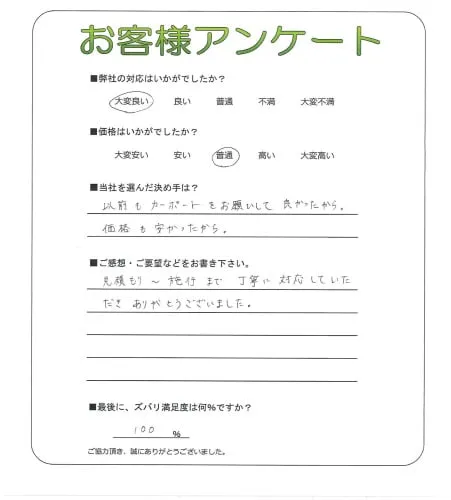 お客様アンケート
■弊社の対応はいかがでしたか？
大変良い 良い 普通 不満 大変不満
■価格はいかがでしたか？
大変安い 安い 普通 高い 大変高い
■当社を選んだ決め手は？
以前も カーポートをお願いして 良かったから。
価格も安かったから。
■ご感想・ご要望などをお書き下さい。
見積もり～施行まで 丁寧に 対応していた
だき ありがとうございました。
■最後に、ズバリ満足度は何%ですか？
100 %
ご協力頂き、誠にありがとうございました。